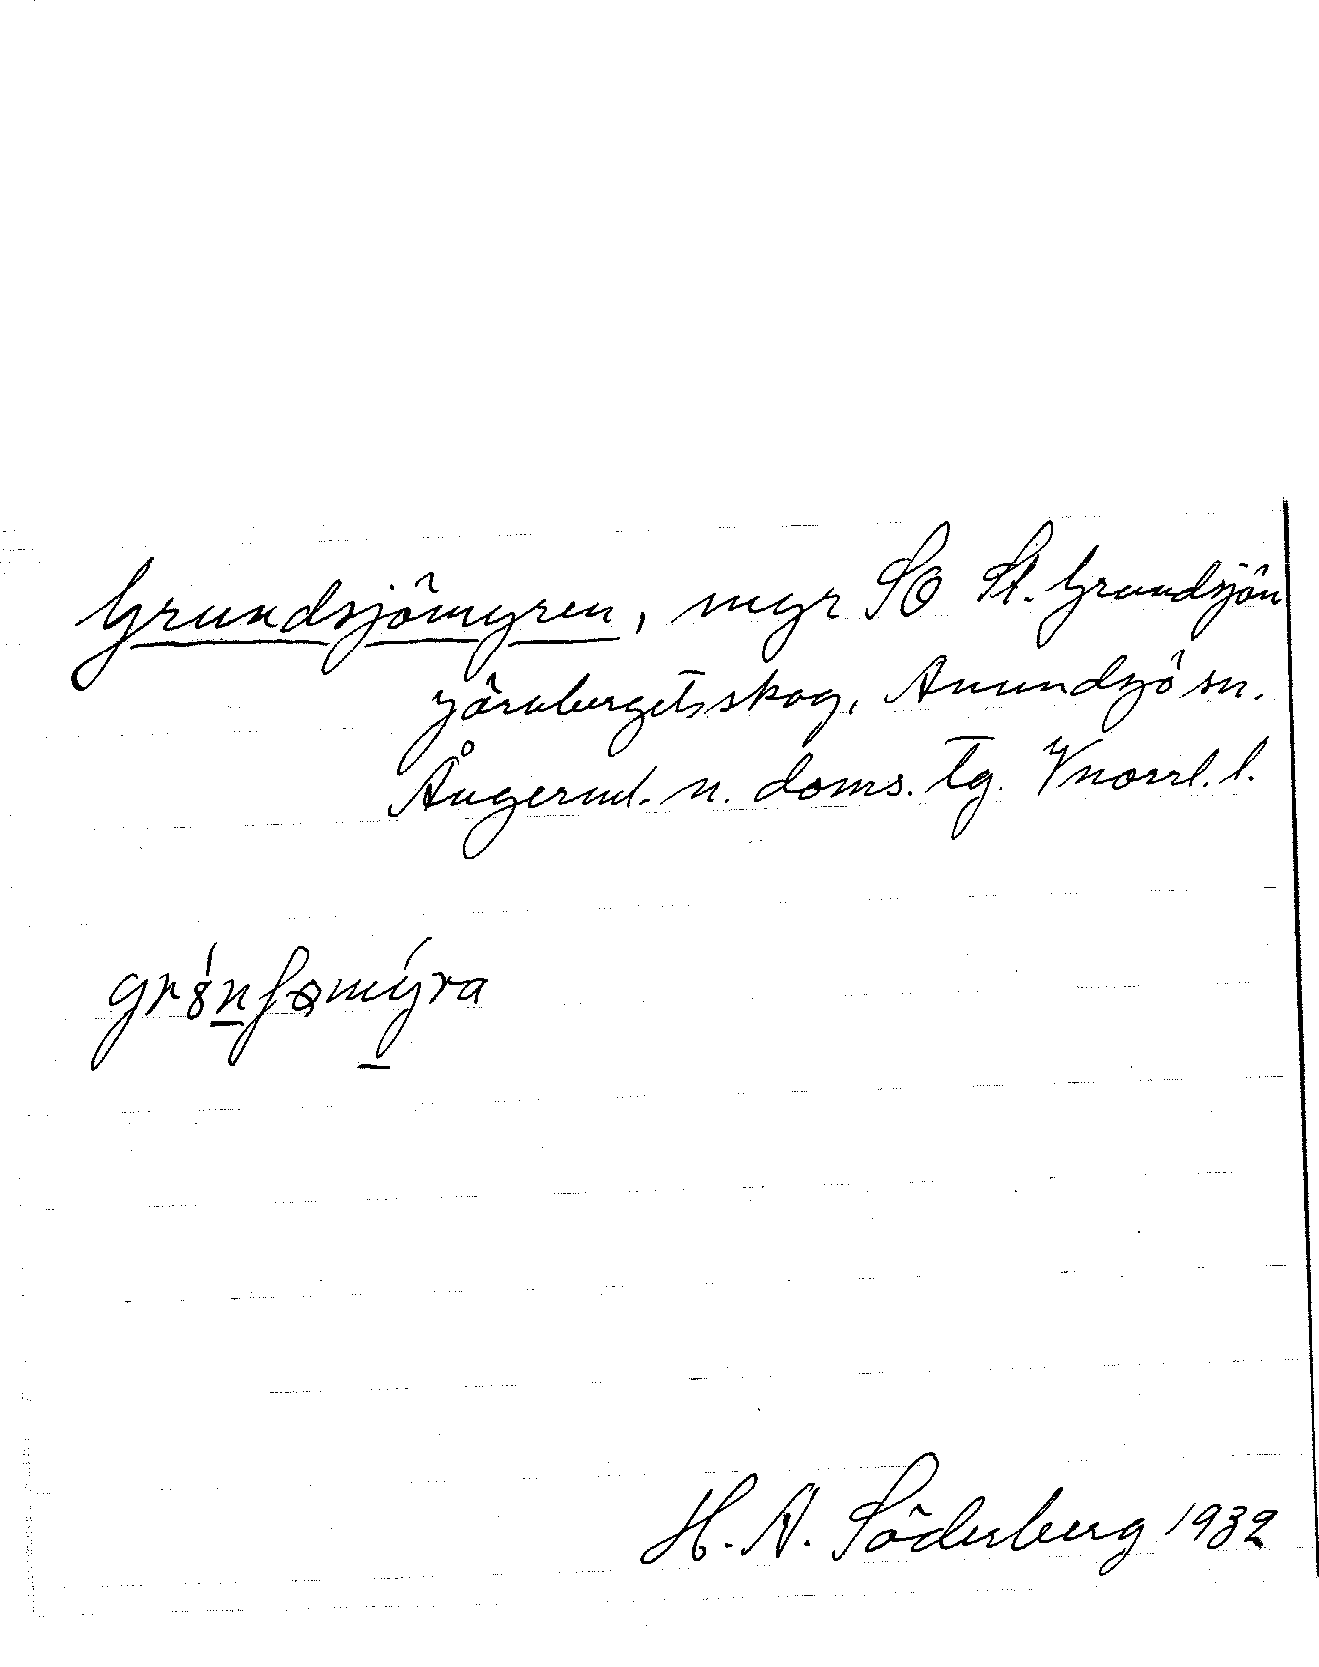 Grundsjömyren, myr SO St. Grundsjön
Järnbergetsskog, Anundsjö sn.
Ångerml. n. doms. tg. Vnorrl. l.
H. A. Söderberg 1932